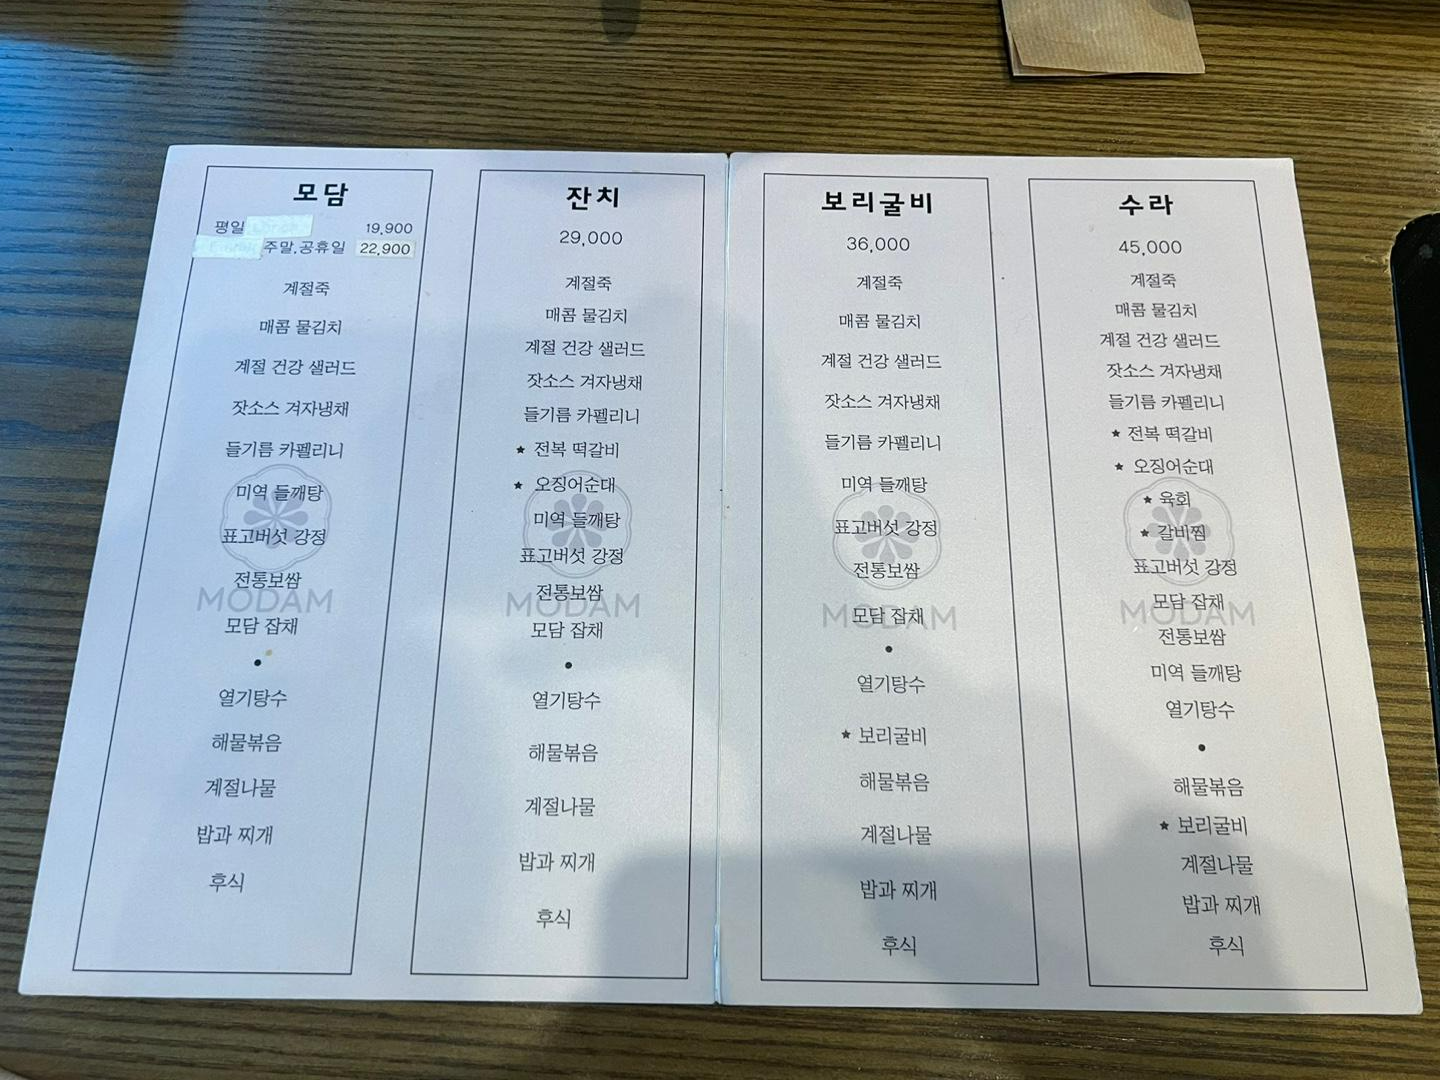 모담
평일 19,900
주말.공휴일 22,900
계절죽
매콤 물김치
계절 건강 샐러드
잣소스 겨자냉채
들기름 카펠리니
미역 들깨탕
표고버섯 강정
전통보쌈
MODAM
모담 잡채
•
열기탕수
해물볶음
계절나물
밥과 찌개
후식
잔치
29,000
계절죽
매콤 물김치
계절 건강 샐러드
잣소스 겨자냉채
들기름 카펠리니
★ 전복 떡갈비
★ 오징어순대
미역 들깨탕
표고버섯 강정
전통보쌈
MODAM
모담 잡채
•
열기탕수
해물볶음
계절나물
밥과 찌개
후식
보리굴비
36,000
계절죽
매콤 물김치
계절 건강 샐러드
잣소스 겨자냉채
들기름 카펠리니
미역 들깨탕
표고버섯 강정
전통보쌈
MODAM
모담 잡채
•
열기탕수
★ 보리굴비
해물볶음
계절나물
밥과 찌개
후식
수라
45,000
계절죽
매콤 물김치
계절 건강 샐러드
잣소스 겨자냉채
들기름 카펠리니
★ 전복 떡갈비
★ 오징어순대
★ 육회
★ 갈비찜
표고버섯 강정
모담 잡채
MODAM
전통보쌈
미역 들깨탕
열기탕수
•
해물볶음
★ 보리굴비
계절나물
밥과 찌개
후식